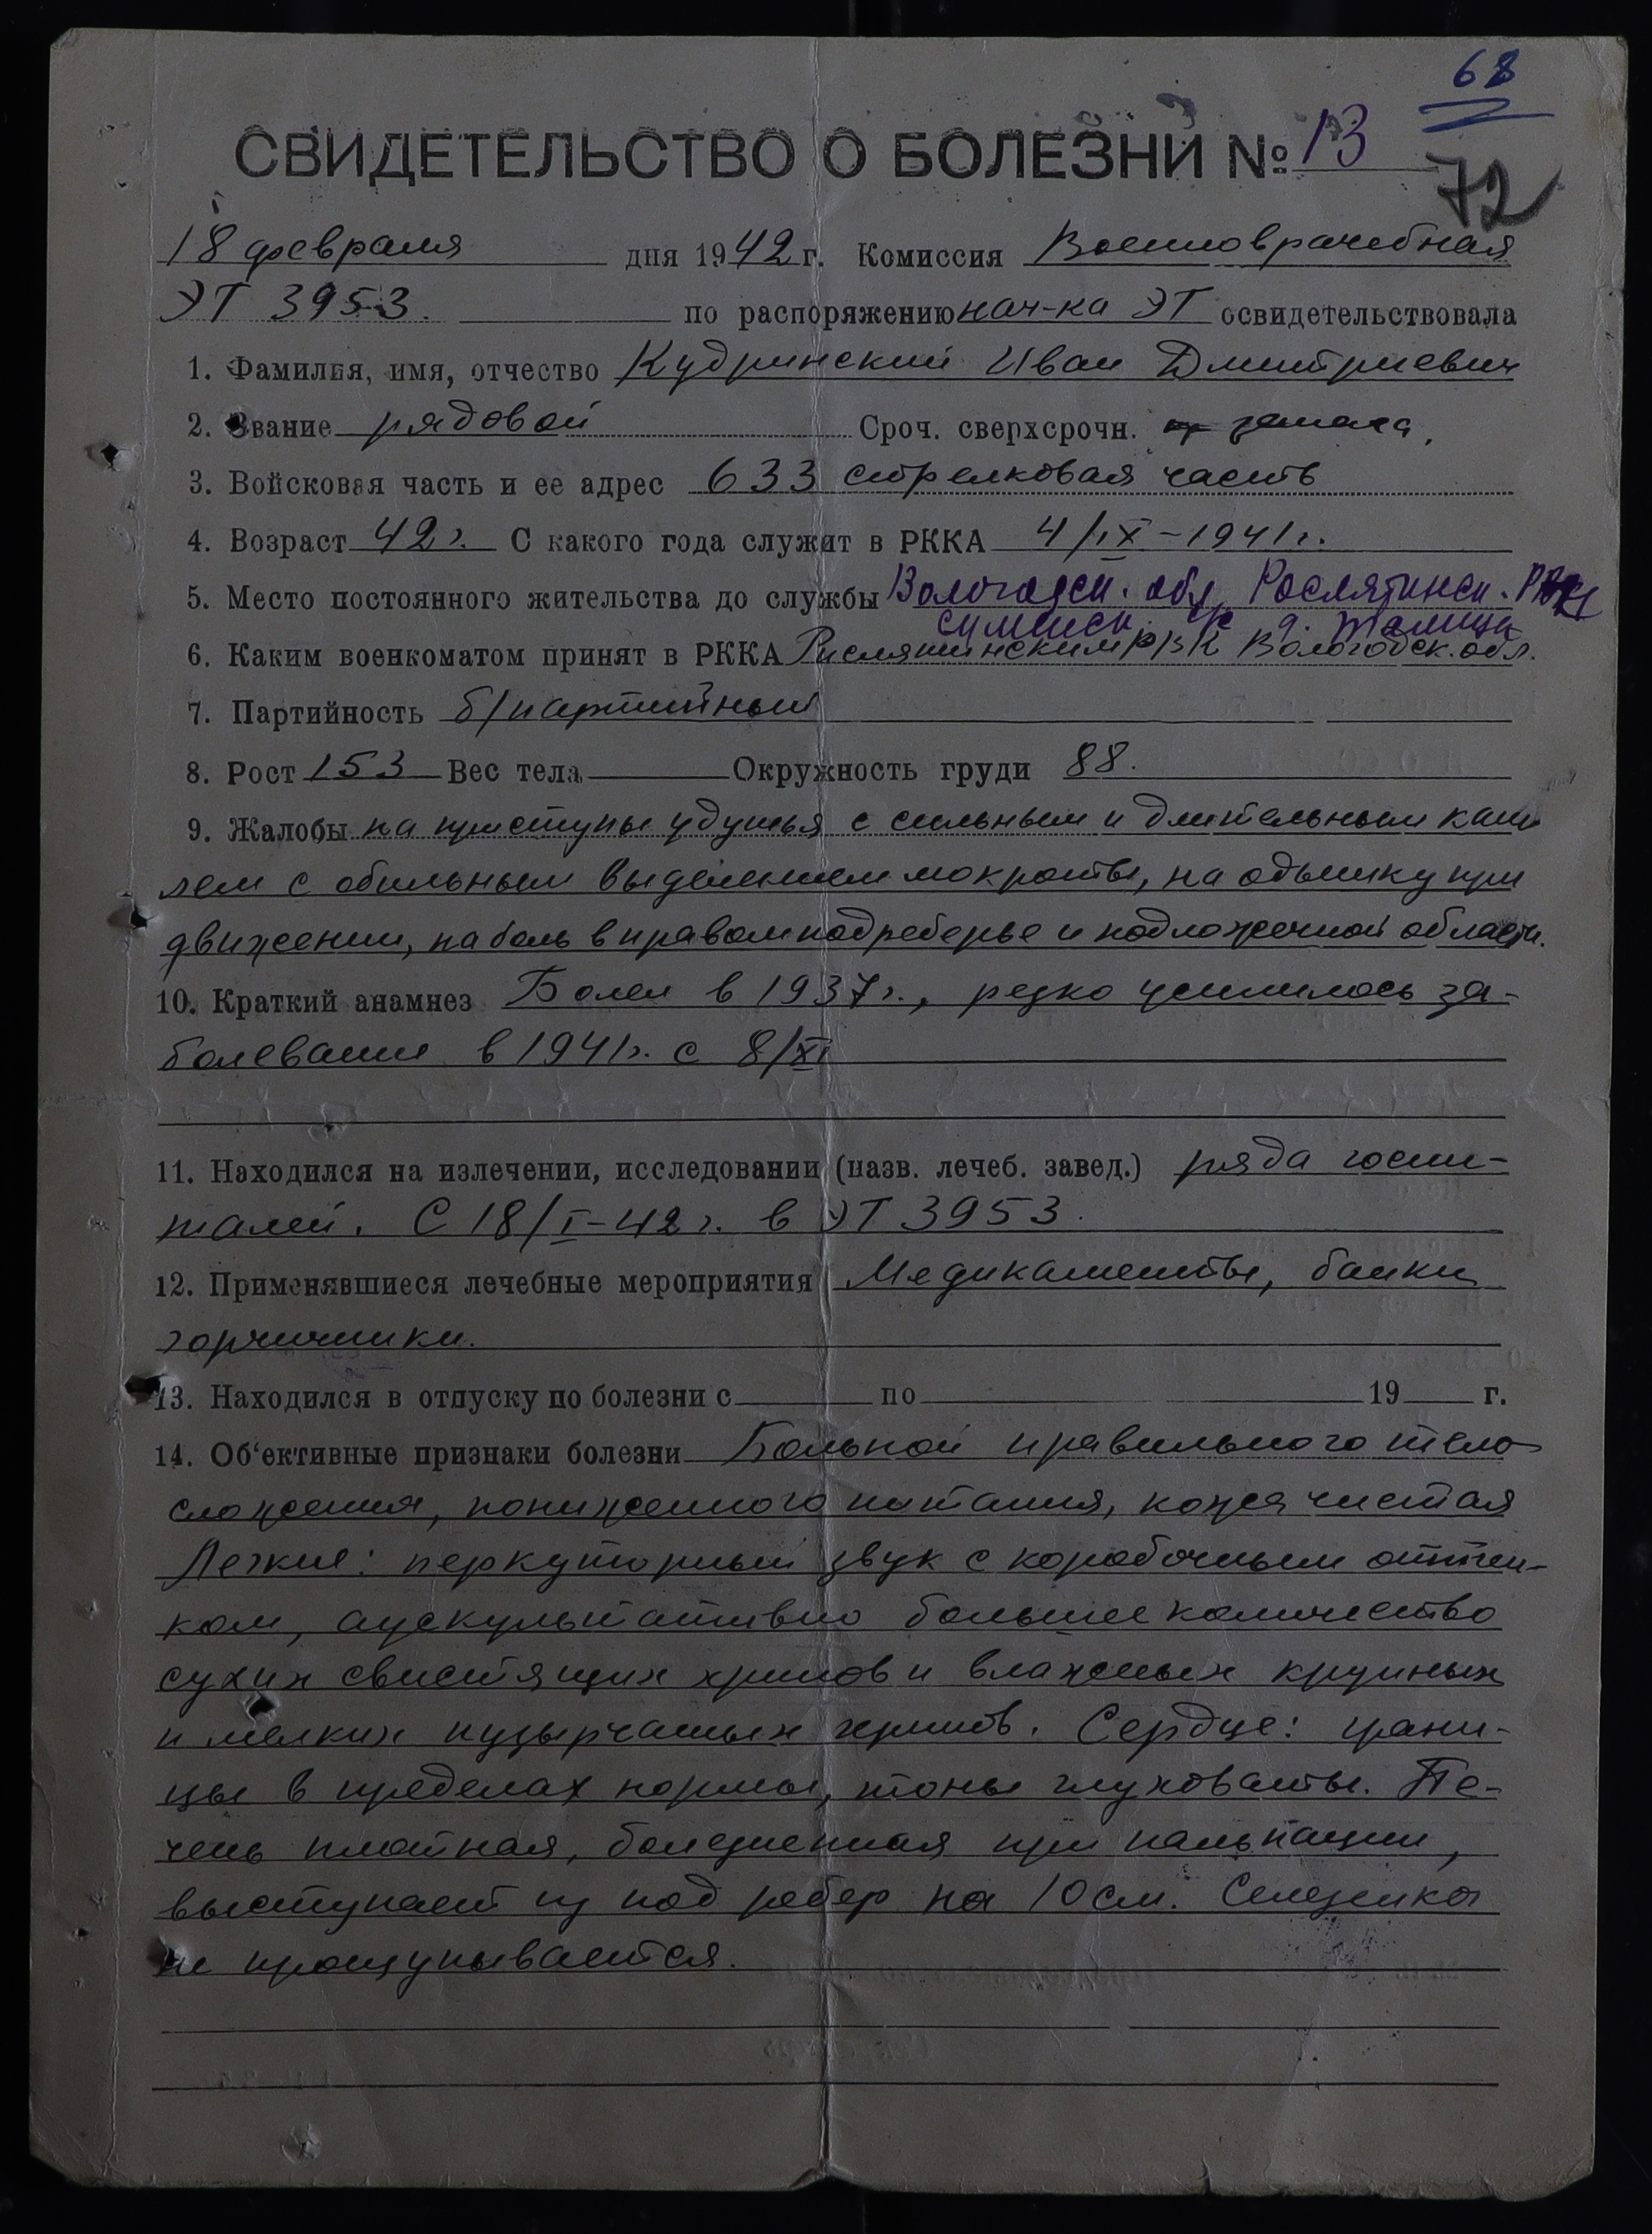 68
СВИДЕТЕЛЬСТВО О БОЛЕЗНИ № 13
72
18 февраля дня 1942 г. Комиссия Военноврачебная
ЭТ 3953. по распоряжению нач-ка ЭТ освидетельствовала
1. Фамилия, имя, отчество Кудринский Иван Дмитриевич
2. Звание рядовой Сроч. сверхсрочн. запаса,
3. Войсковая часть и ее адрес 633 стрелковая часть
4. Возраст 42 г. С какого года служит в РККА 4/IX-1941 г.
5. Место постоянного жительства до службы Вологодск. обл. Рослятинск.
д. Талица
6. Каким военкоматом принят в РККА Рослятинским РВК Вологодск. обл.
7. Партийность б/партийный
8. Рост 153 Вес тела Окружность груди 88.
9. Жалобы на приступы удушья с сильным и длительным каш
лем с обильным выделением мокроты, на одышку при
движении, на боль в правом подреберье и подложечной области.
10. Краткий анамнез Болел в 1937 г., резко усилилось за-
болевание в 1941 г. с 8/XI
11. Находился на излечении, исследовании (назв. лечеб. завед.) ряда госпи-
талей. С 18/I-42 г. в ЭТ 3953.
12. Применявшиеся лечебные мероприятия Медикаменты, банки
горчичники.
13. Находился в отпуску по болезни с по 19 г.
14. Об'ективные признаки болезни Больной правильного тело
сложения, пониженного питания, кожа чистая
Легкие: перкуторный звук с коробочным оттен-
ком, аускультативно большое количество
сухих свистящих хрипов и влажных крупных
и мелких пузырчатых хрипов. Сердце: грани-
цы в пределах нормы, тоны глуховаты. Пе-
чень плотная, болезненная при пальпации,
выступает из под ребер на 10 см. Селезенка
не прощупывается.